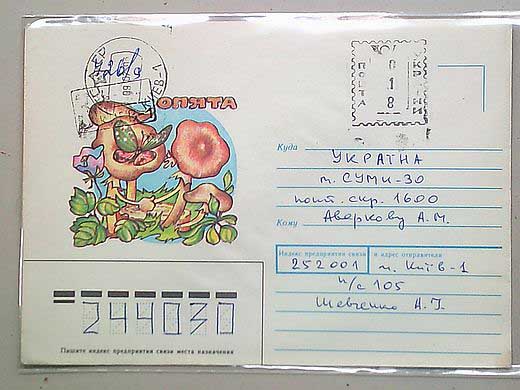 ОПЯТА
ПОШТА
0
1
8
Куда УКРАТНА
м. СУМИ-30
пошт. скр. 1600
Кому Аверкову А.М.
Индекс предприятия связи и адрес отправителя
252001 м. Київ-1
п/с 105
Шевченко А.І.
244030
Пишите индекс предприятия связи места назначения